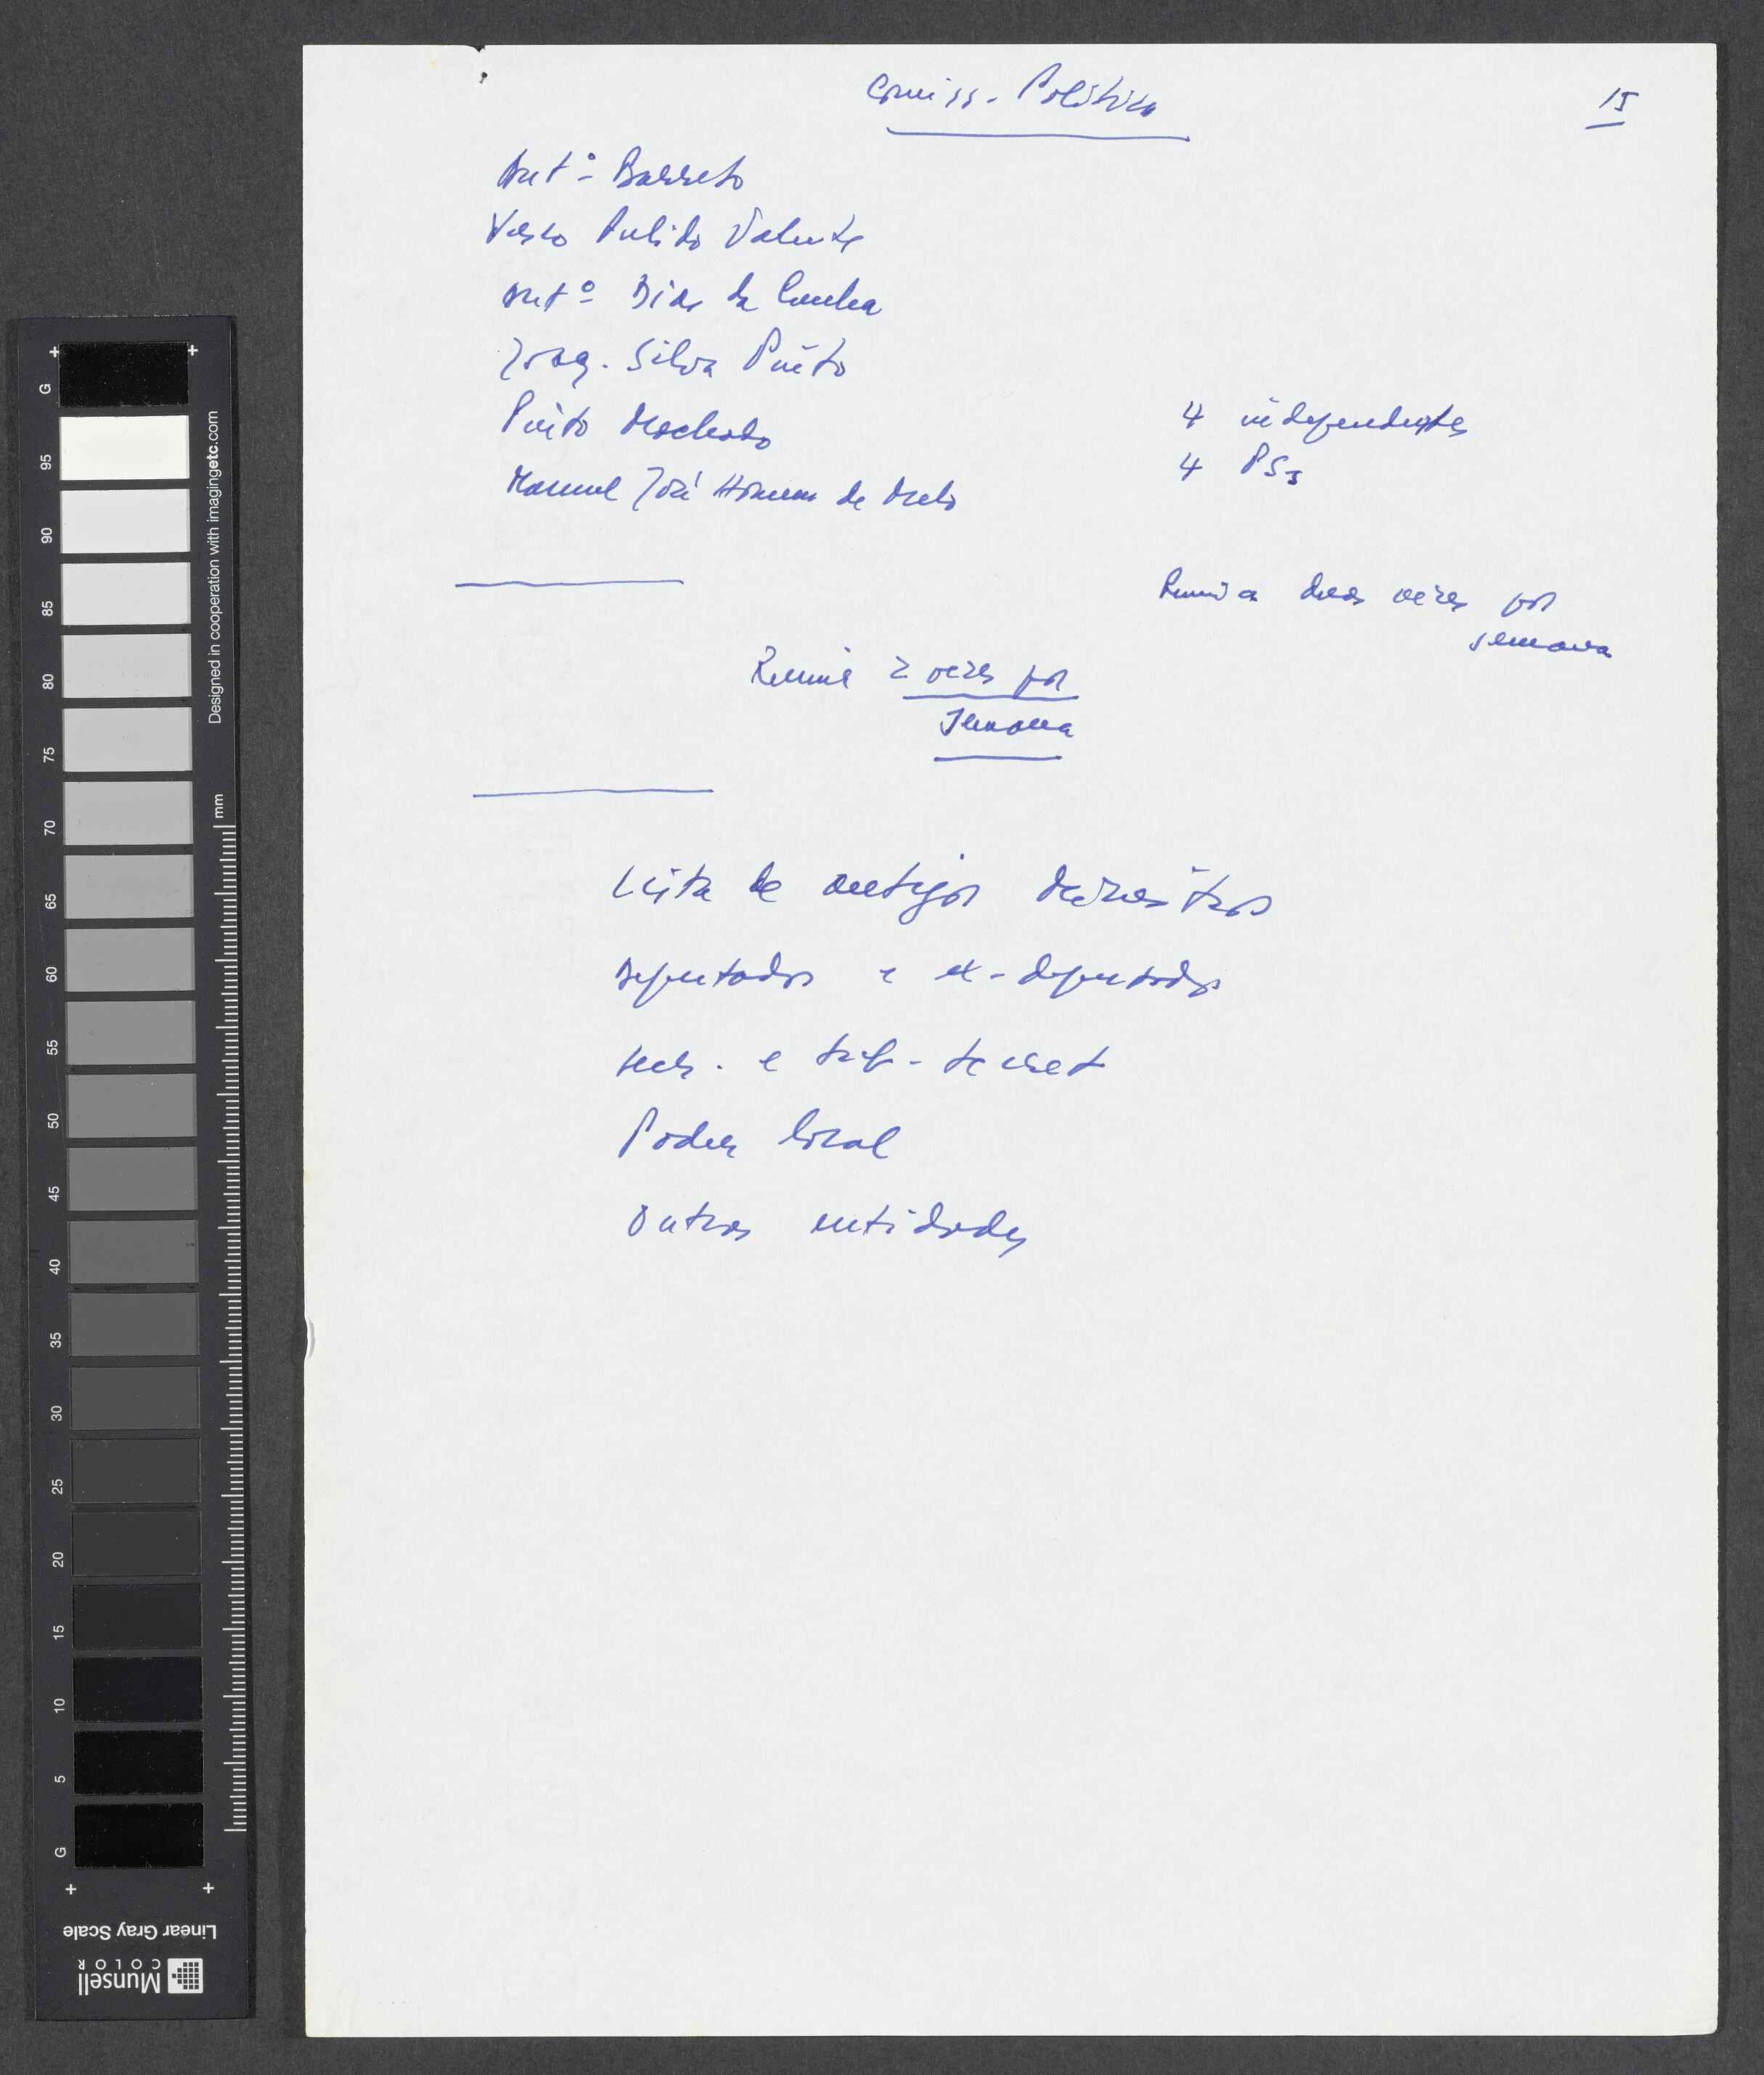 Comiss. Política
15
Antº Barreto
Vasco Pulido Valente
Antº Dias da Cunha
Joaq. Silva Pinto
Pinto Machado
Manuel José Homem de Melo
4 independentes
4 PSs
Reunia duas vezes por
semana
Reunia 2 vezes por
semana
Lista de antigos Ministros
Deputados e ex-deputados
secr. e sub-secret
Poder local
Outras entidades
Designed in cooperation with imagingetc.com
mm
G
95
90
85
80
75
70
65
60
55
50
45
40
35
30
25
20
15
10
5
G
Linear Gray Scale
Munsell
COLOR